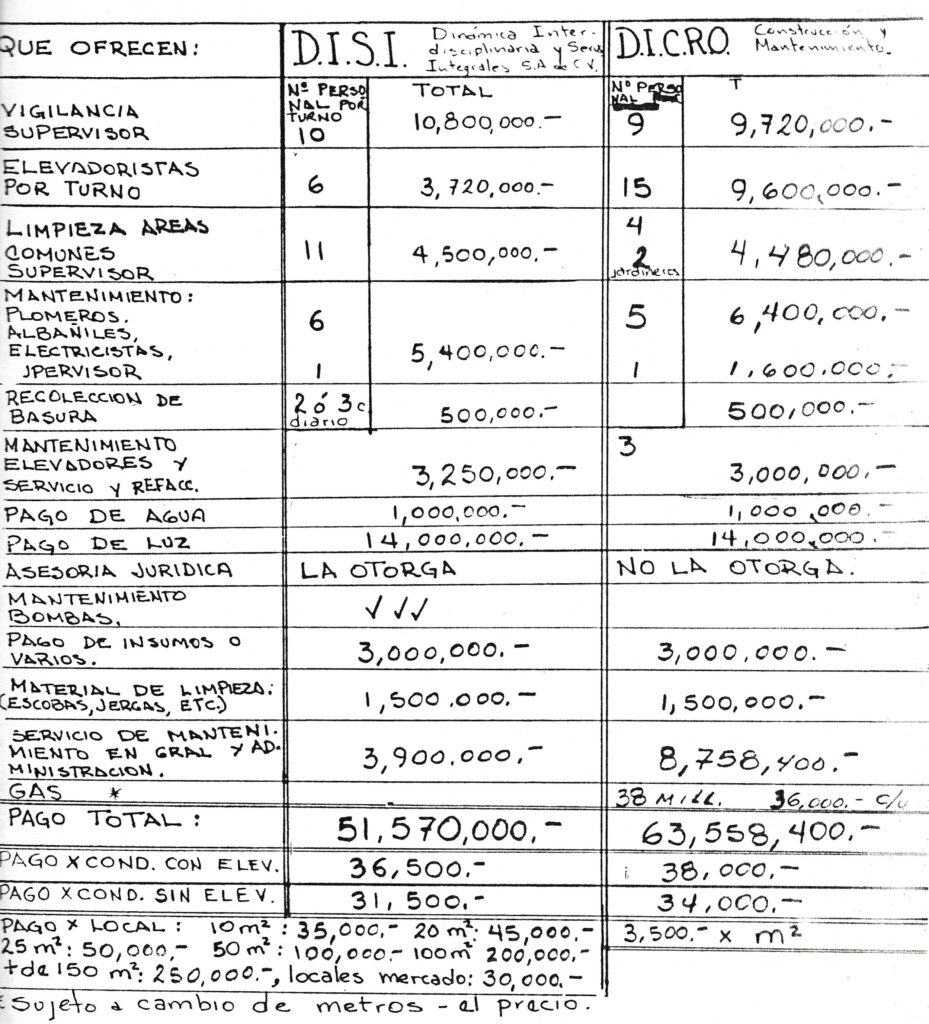 QUE OFRECEN: D.I.S.I. Dinámica Inter-
disciplinaria y Servs
Integrales S.A de C.V. D.I.C.R.O. Construcción y
Mantenimiento.
Nº PERSO
NAL POR
TURNO TOTAL Nº PERSO
NAL T
VIGILANCIA
SUPERVISOR 10 10,800,000.- 9 9,720,000.-
ELEVADORISTAS
POR TURNO 6 3,720,000.- 15 9,600,000.-
LIMPIEZA AREAS
COMUNES
SUPERVISOR 11 4,500,000.- 4
2
jardineros 4,480,000.-
MANTENIMIENTO:
PLOMEROS,
ALBAÑILES,
ELECTRICISTAS,
JPERVISOR 6
1 5,400,000.- 5 6,400,000.-
1 1,600.000.-
RECOLECCION DE
BASURA 2 ó 3 c
diario 500,000.- 500,000.-
MANTENIMIENTO
ELEVADORES Y
SERVICIO Y REFACC. 3,250,000.- 3 3,000,000.-
PAGO DE AGUA 1,000,000.- 1,000,000.-
PAGO DE LUZ 14,000,000.- 14,000,000.-
ASESORIA JURIDICA LA OTORGA NO LA OTORGA.
MANTENIMIENTO
BOMBAS. ✓ ✓ ✓
PAGO DE INSUMOS O
VARIOS. 3,000,000.- 3,000,000.-
MATERIAL DE LIMPIEZA:
(ESCOBAS, JERGAS, ETC.) 1,500.000.- 1,500,000.-
SERVICIO DE MANTENI-
MIENTO EN GRAL Y AD-
MINISTRACION. 3,900.000.- 8,758,400.-
GAS * 38 MILL. 36,000.- c/u
PAGO TOTAL: 51,570,000.- 63,558,400.-
PAGO X COND. CON ELEV. 36,500.- 38,000.-
PAGO X COND. SIN ELEV. 31,500.- 34,000.-
PAGO X LOCAL: 10 m²: 35,000.- 20 m²: 45,000.- 3,500.- x m²
25 m²: 50,000.- 50 m²: 100,000.- 100 m² 200,000.-
+ de 150 m²: 250,000.-, locales mercado: 30,000.-
* Sujeto a cambio de metros - al precio.